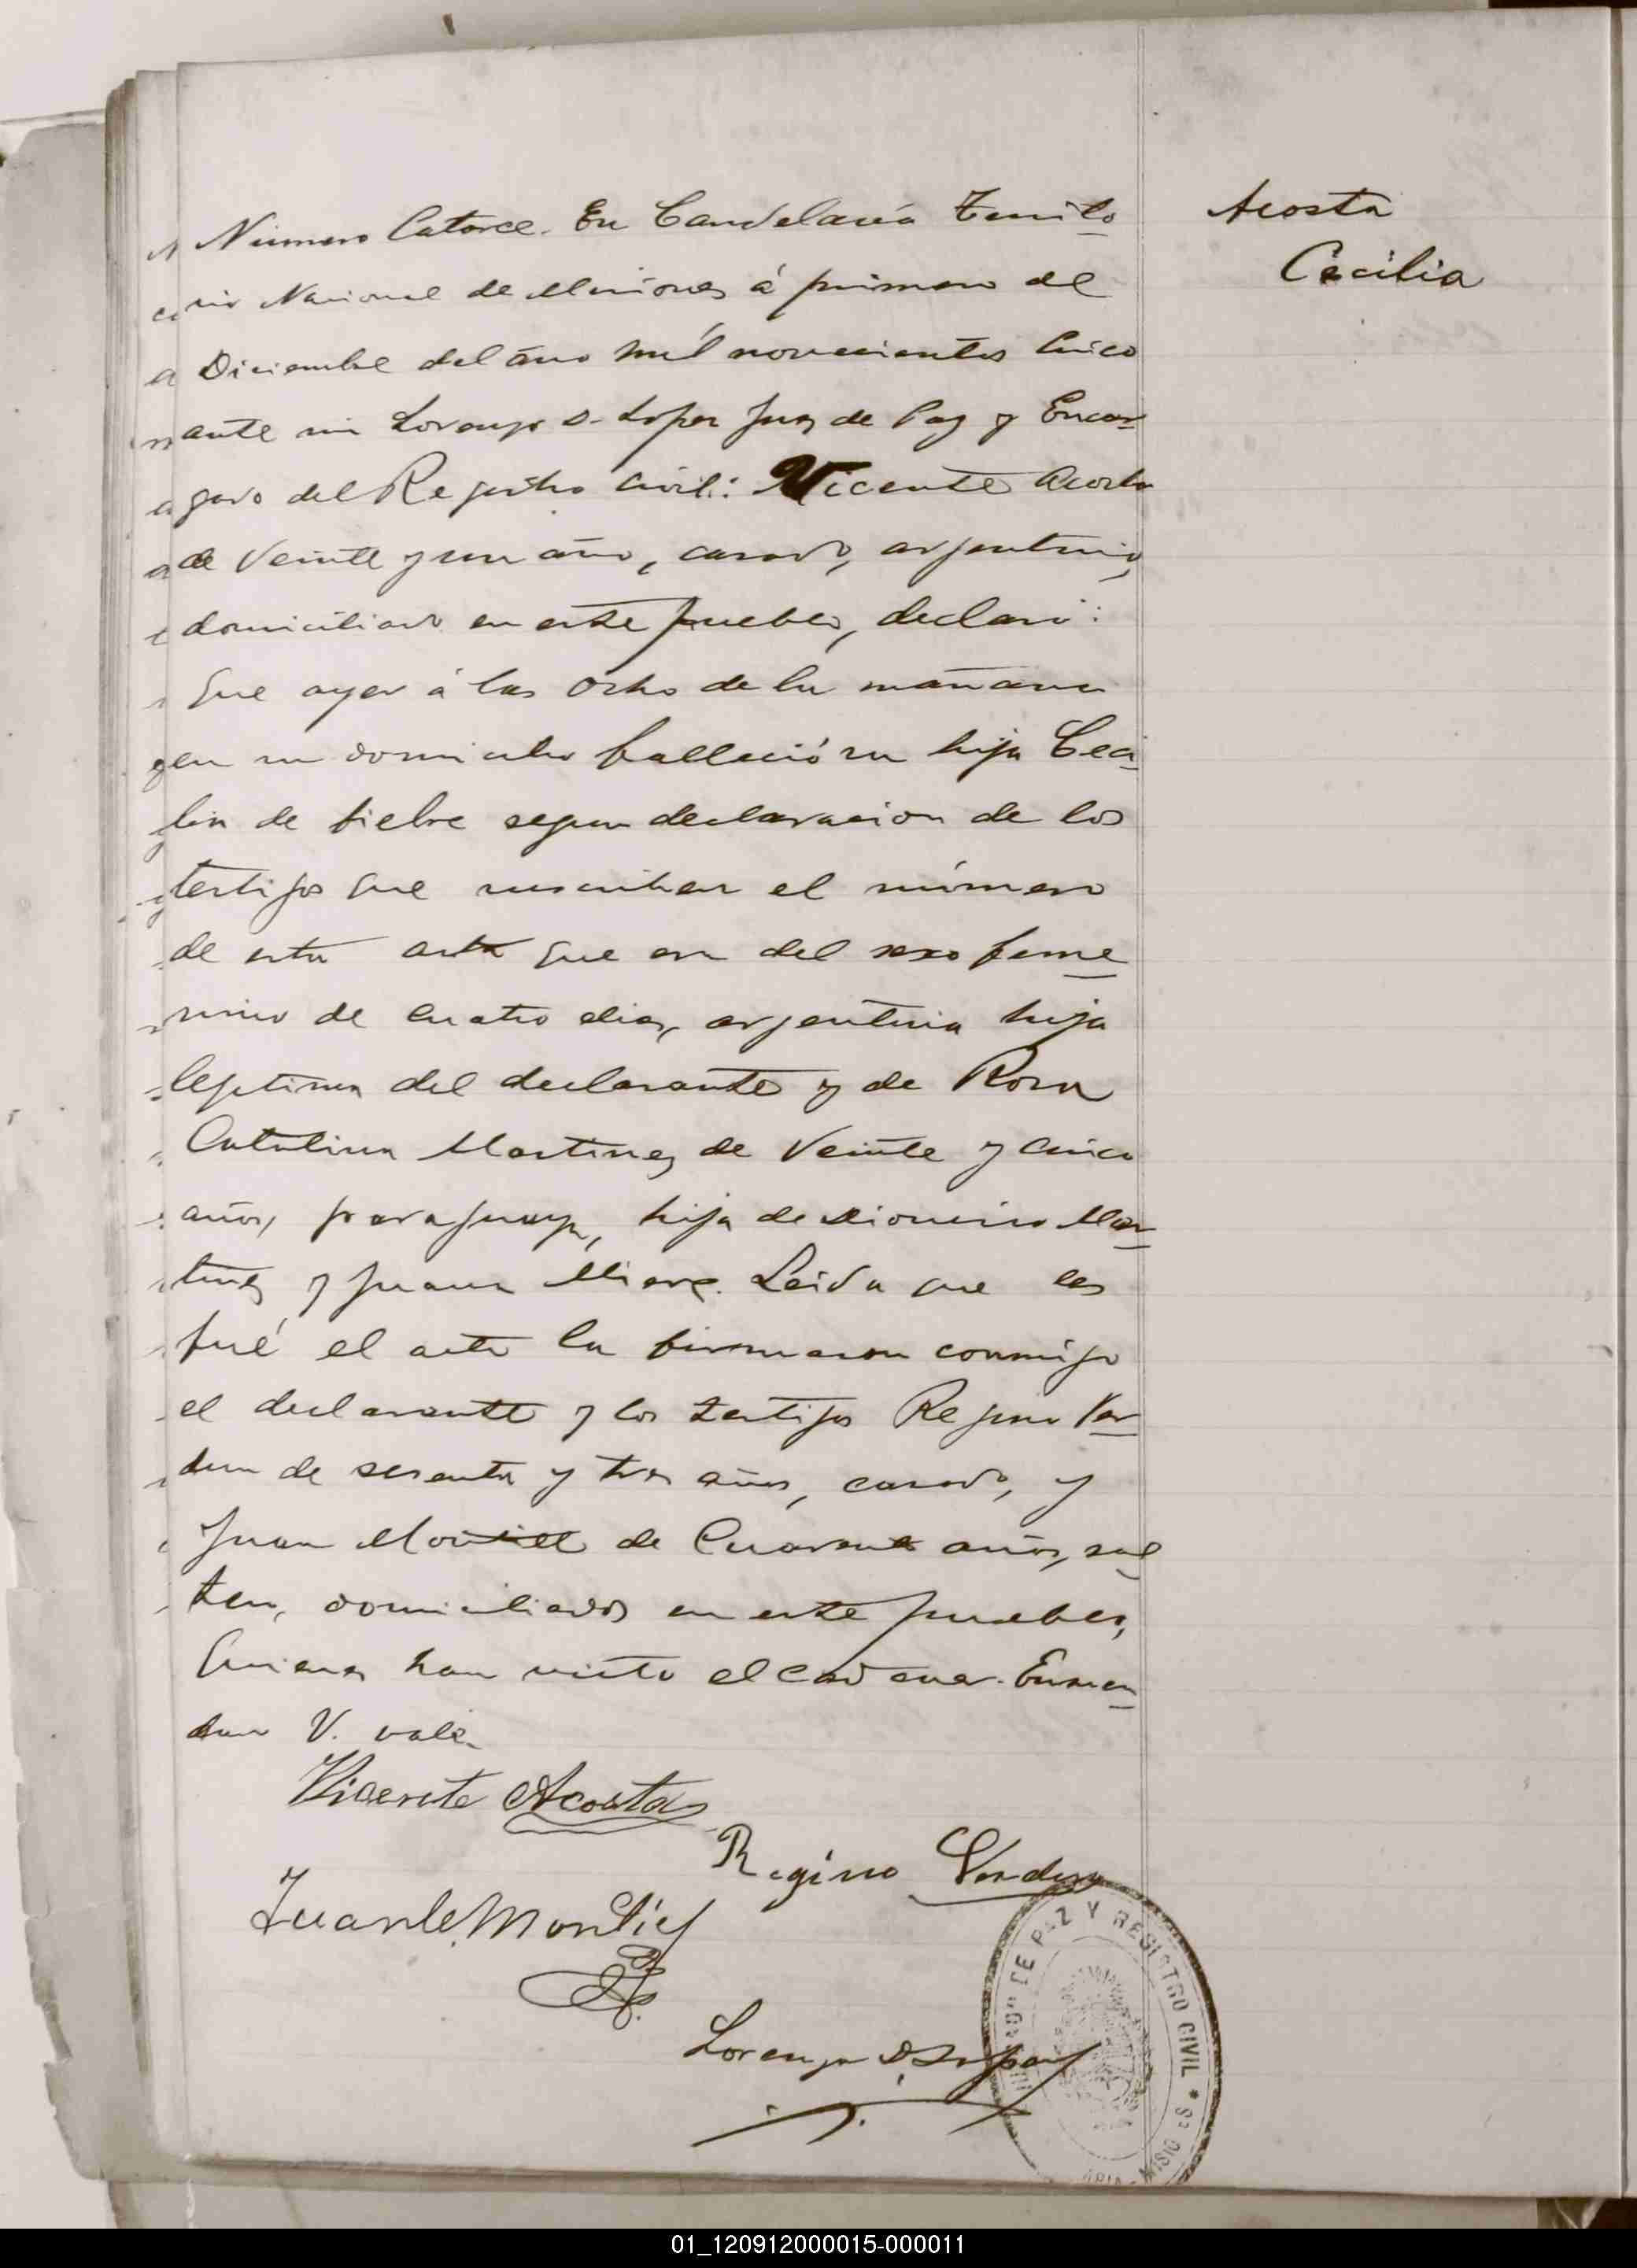 Acosta
Cecilia
Número Catorce. En Candelaria Territo
rio Nacional de Misiones á primero de
Diciembre del año mil novecientos cinco
ante mi Lorenzo D. Lopez Juez de Paz y Encar
gado del Registro Civil: Vicente Acosta
de veinte y un año, casado, argentino,
domiciliado en este pueblo, declaró:
Que ayer á las ocho de la mañana
en su domicilio falleció su hija Ceci
lia de fiebre segun declaracion de los
testigos que suscriben el número
de esta acta que era del sexo feme
nino de cuatro dias, argentina hija
lejitima del declarante y de Rosa
Catalina Martinez de veinte y cinco
años, paraguaya, hija de Dionisio Mar
tinez y Juana. Leida que les
fué el acta la firmaron conmigo
el declarante y los testigos Regino Ver
dun de sesenta y tres años, casado, y
Juan Montiel de Cuarenta años, sol
tero, domiciliados en este pueblo,
quienes han visto el cadaver. Enmen
dado V. vale.
Vicente Acosta
Regino Verdun
Juan Montiel
Lorenzo D. Lopez
JUZGADO DE PAZ Y REGISTRO CIVIL * MISIONES
01_120912000015-000011